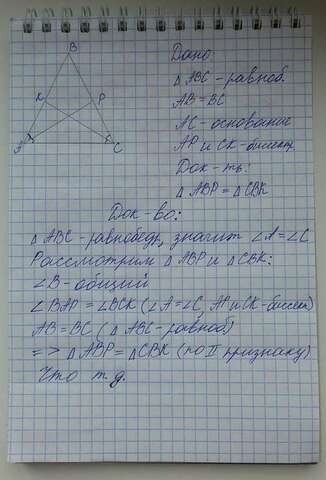 B
Дано:
△ABC - равноб.
AB = BC
K P
AC - основание
A C
AP и CK - биссект.
Док-ть:
△ABP = △CBK
Док-во:
△ABC - равнобедр, значит ∠A=∠C
Рассмотрим △ABP и △CBK:
∠B - общий
∠BAP = ∠BCK (∠A=∠C, AP и CK - биссект)
AB = BC (△ABC - равноб)
=> △ABP = △CBK (по II признаку)
Что т д.